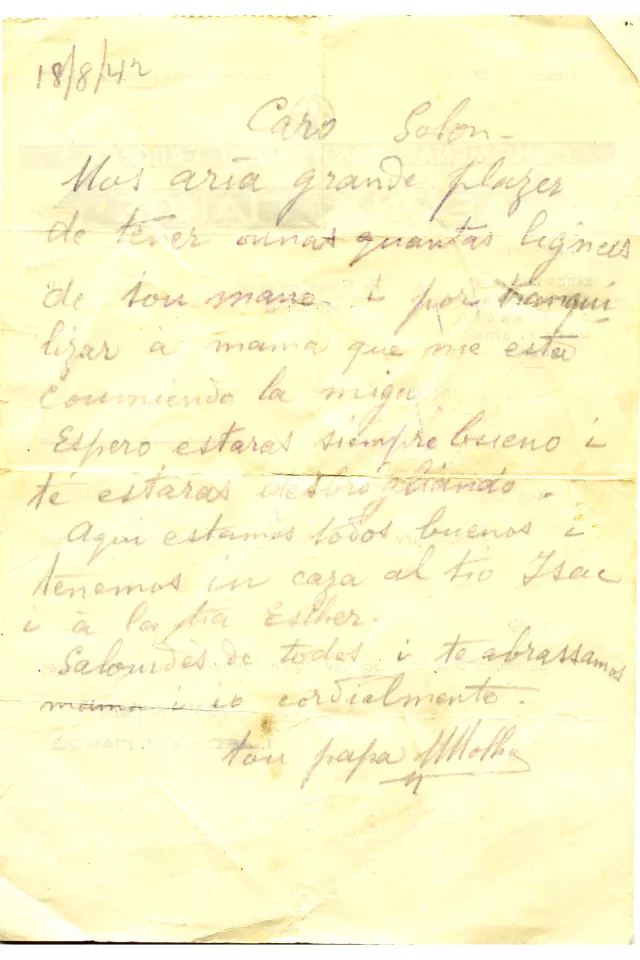 18/8/42
Caro Solon -
Mos aria grande plazer
de tener ounas quantas ligneas
de tou mano i por tranqui
lizar à mama que me esta
coumiendo la miga
Espero estaras siempre bueno i
te estaras
Aqui estamos todos buenos i
tenemos in caza al tio Isac
i à la tia Esther.
Saloudès de todos i te abrassamos
mama i io cordialmente.
tou papa